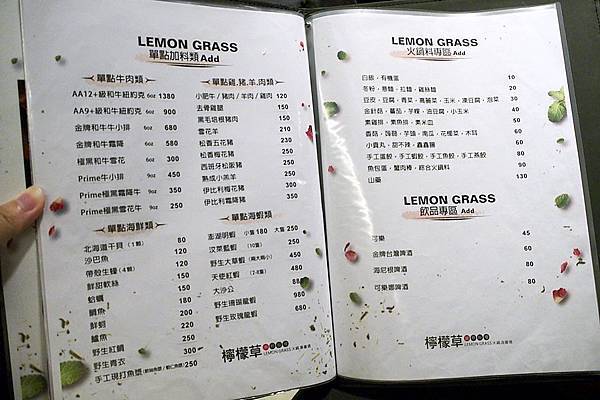 LEMON GRASS
單點加料類 Add
單點牛肉類
AA12+級和牛紐約克 6oz 1380
AA9+級和牛紐約克 6oz 900
金牌和牛牛小排 6oz 680
金牌和牛霜降 6oz 580
極黑和牛雪花 6oz 300
Prime牛小排 9oz 450
Prime極黑霜降牛 9oz 350
Prime極黑雪花牛 9oz 250
單點海鮮類
北海道干貝 (1顆) 80
沙巴魚 120
帶殼生蠔 (4顆) 150
鮮甜軟絲 150
蛤蠣 180
鯛魚 200
鮮蚵 220
鱸魚 250
野生紅鯛 300
野生青衣
手工現打魚漿 250
單點雞,豬,羊,肉類
小肥牛 / 豬肉 / 羊肉 / 雞肉 120
去骨雞腿 150
黑毛培根豬肉 150
雪花羊 210
松香五花豬 230
松香梅花豬 250
西班牙松阪豬 250
熟成小羔羊 250
伊比利梅花豬 300
伊比利霜降豬 350
單點海蝦類
澎湖明蝦 小隻 180 大隻 250
汶萊藍蝦 (10隻) 250
野生大草蝦 (兩大兩小) 450
天使紅蝦 (7-8隻) 480
大沙公 880
野生珊瑚龍蝦 980
野生玫瑰龍蝦 680
檸檬草
LEMON GRASS 火鍋海鮮塔
LEMON GRASS
火鍋料專區 Add
白飯,有機蛋 10
冬粉,意麵,拉麵,雞絲麵 20
豆皮,豆腐,青菜,高麗菜,玉米,凍豆腐,泡菜 30
金針菇,蕃茄,芋粿,油豆腐,小玉米 40
素雞排,素魚排,素米血 50
香菇,鴻喜,芋頭,南瓜,花椰菜,木耳 60
小貢丸,甜不辣,鑫鑫腸 60
手工蛋餃,手工蝦餃,手工魚餃,手工燕餃 80
魚包蛋,蟹肉棒,綜合火鍋料 90
山藥 130
LEMON GRASS
飲品專區 Add
可樂 45
金牌台灣啤酒 60
海尼根啤酒 80
可樂娜啤酒 80
檸檬草
LEMON GRASS 火鍋海鮮塔